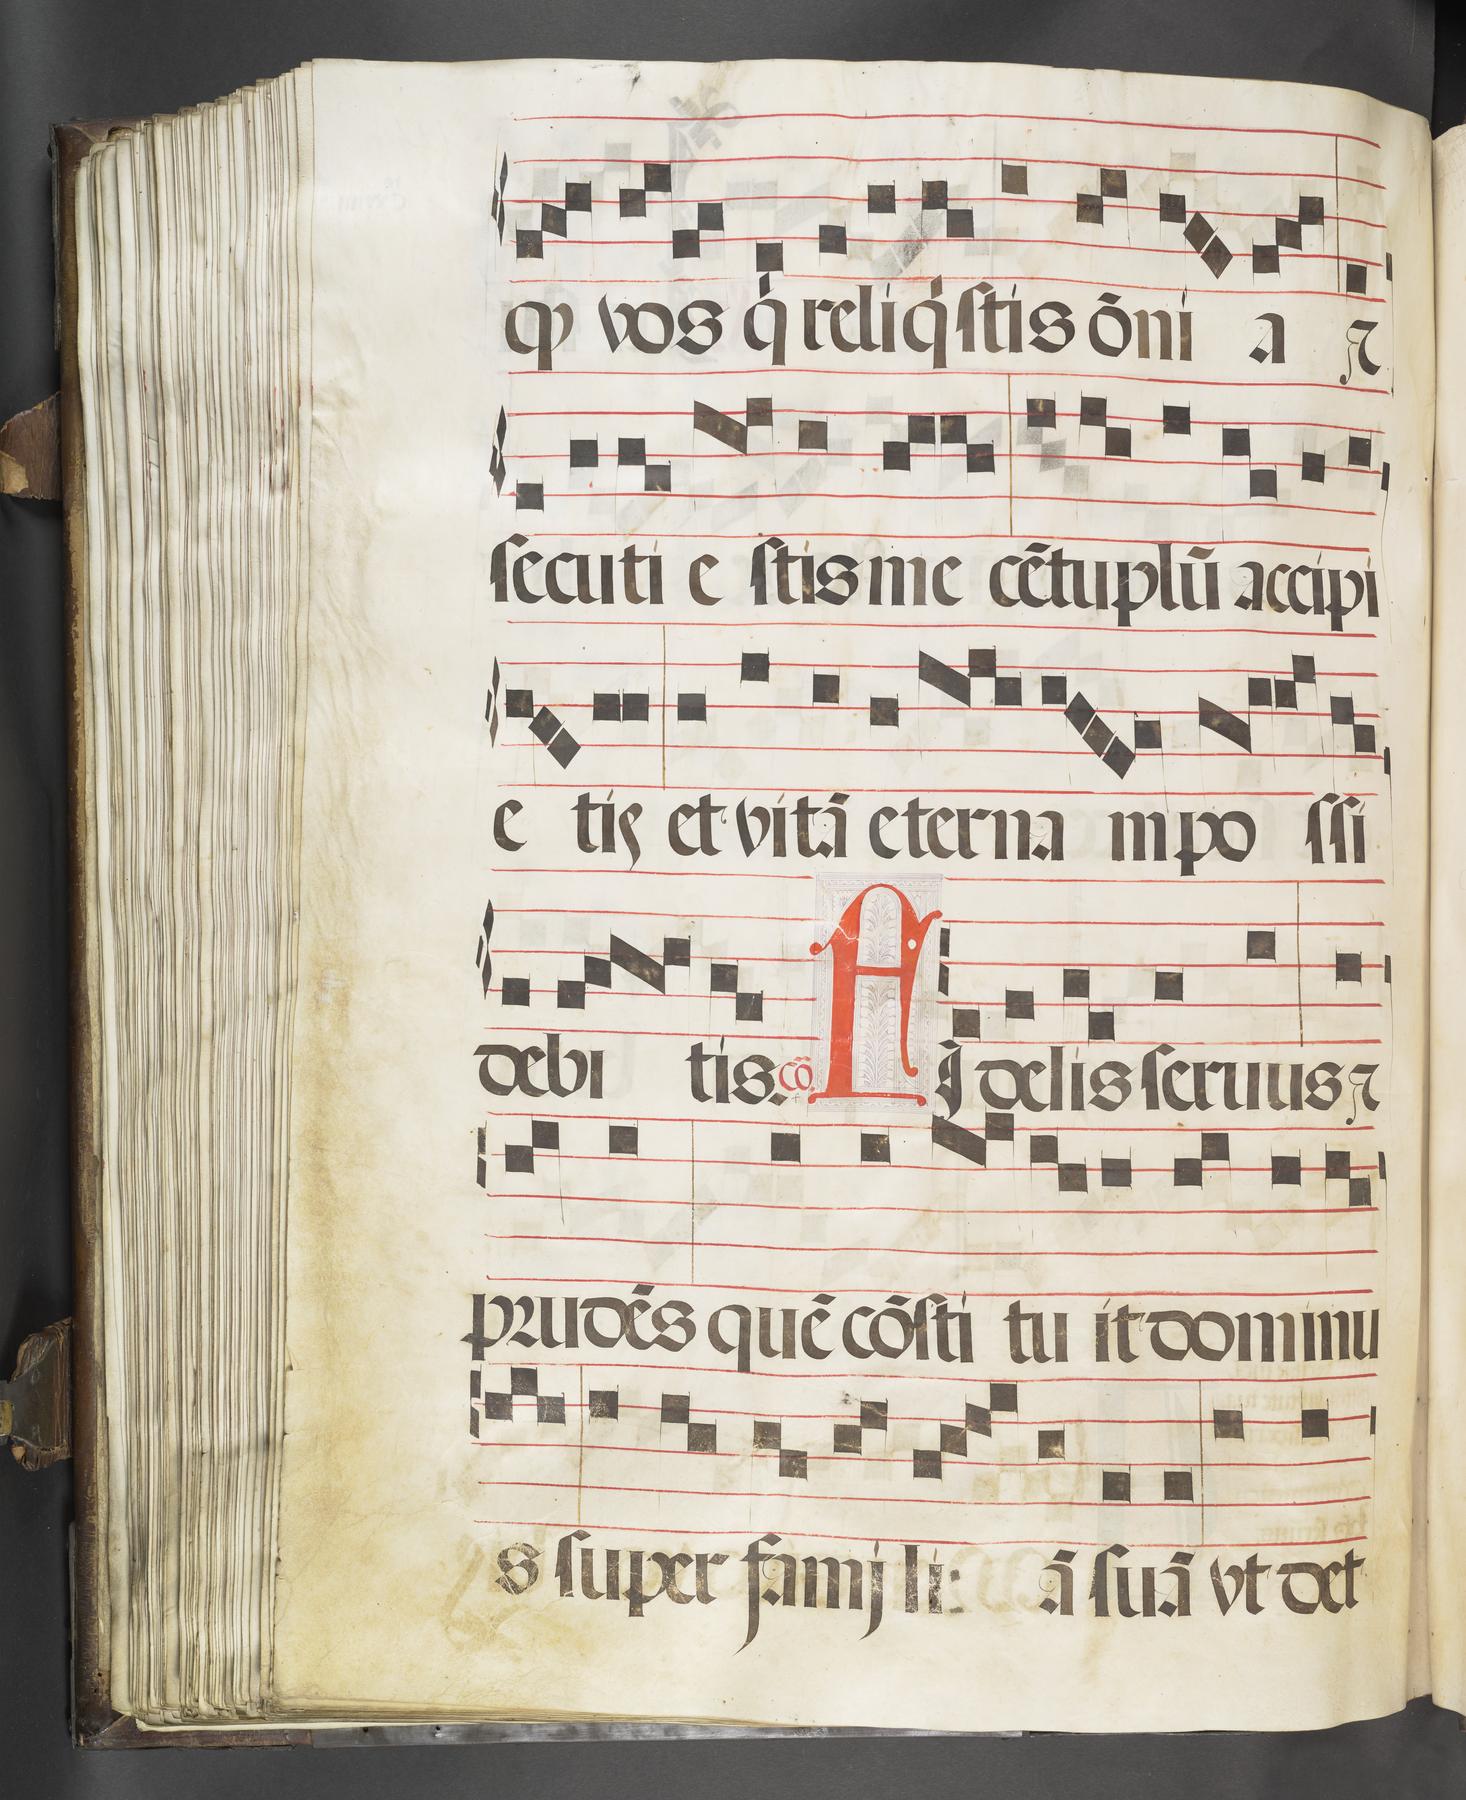 qȝ vos q̇ reliq̇stis õni a ⁊
secuti e stis me cẽtuplũ accipi
e tis et vitã eterna m po ssi
debi tis. cõ. F Idelis seruus ⁊
prudẽs quẽ cõsti tu it dominu
s super famj li ã suã vt det